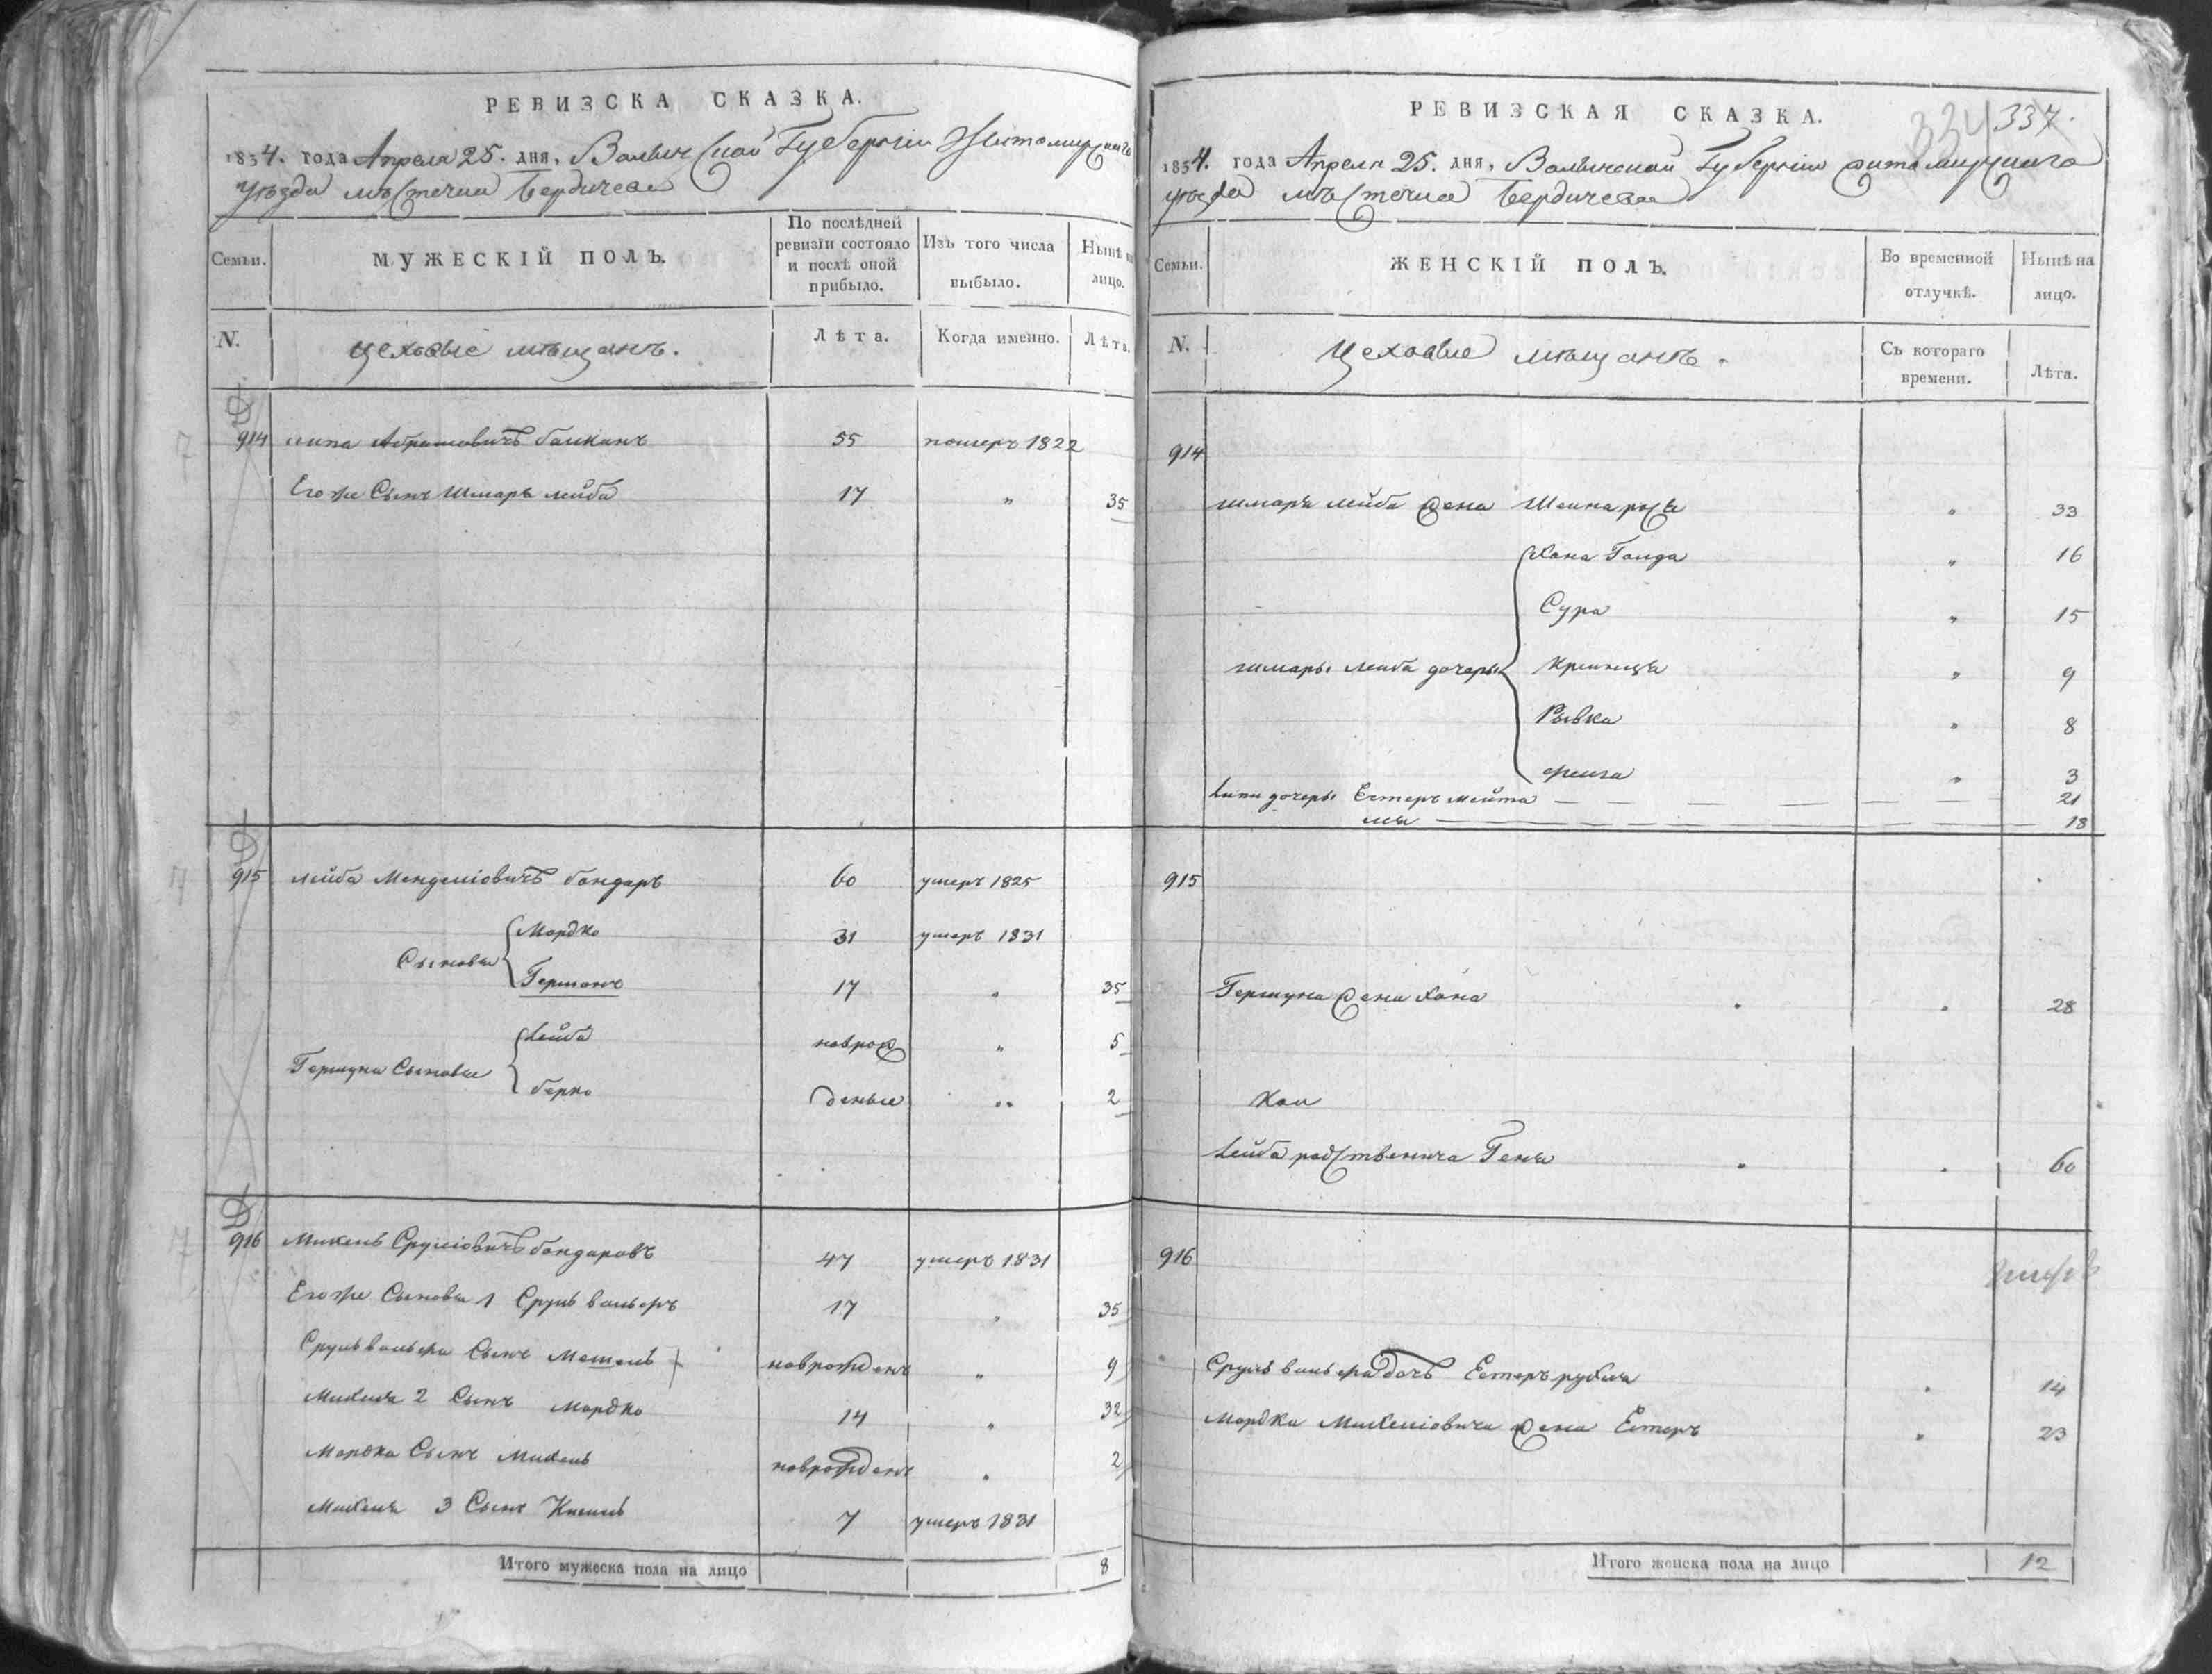 РЕВИЗСКА СКАЗКА.
1834. года Апреля 25. дня, Волынской Губернiи Житомирскаго
уѣзда мѣстечка Бердичева
Семьи.
МУЖЕСКIЙ ПОЛЪ.
По послѣдней ревизiи состояло и послѣ оной прибыло.
Изъ того числа выбыло.
Нынѣ на лицо.
N.
цеховые мѣщанъ.
Лѣта.
Когда именно.
Лѣта.
914 Липа Абрамовичъ 55 померъ 1822
Его же Сынъ Шмаръ Лейба 17 " 35
915 Лейба Менделiовичъ бондаръ 60 умеръ 1825
Мордко 31 умеръ 1831
Сыновья
Гершонъ 17 " 35
Лейба новрож " 5
Гершуна Сыновья
Берко деные " 2
916 Михель Срулiовичъ бондаровъ 47 умеръ 1831
Его же Сыновья 1 Сруль Вольфъ 17 " 35
Сруль Вольфа Сынъ новрожденъ " 9
Михеля 2 Сынъ Мордко 14 " 32
Мордка Сынъ Михель новрожденъ " 2
Михеля 3 Сынъ Кисиль 7 умеръ 1831
Итого мужеска пола на лицо 8
РЕВИЗСКАЯ СКАЗКА.
334 337.
1834. года Апреля 25. дня, Волынской Губернiи Житомирскаго
уѣзда мѣстечка Бердичева
Семьи.
ЖЕНСКIЙ ПОЛЪ.
Во временной отлучкѣ.
Нынѣ на лицо.
N.
Цеховые мѣщанъ.
Съ котораго времени.
Лѣта.
914
Шмаръ Лейба жена Шейна " 33
Хана Голда " 16
Сура " 15
Шмары Лейба дочеры Крейнця " 9
Рывка " 8
Фейга " 3
Липи дочеры Естеръ Мейта 21
18
915
Гершуна жена Хана " 28
Лейба родственича Геня " 60
916
Сруль Вольфа дочь Естеръ Рухля " 14
Мордки Михелiовича жена Естеръ " 23
Итого женска пола на лицо 12